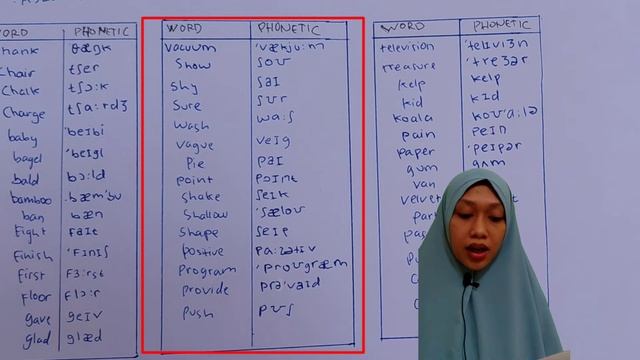 WORD PHONETIC
thank θæŋk
chair tʃer
chalk tʃɔ:k
charge tʃɑ:rdʒ
baby ˈbeɪbi
bagel ˈbeɪgl
bald bɔ:ld
bamboo ˌbæmˈbu
ban bæn
Fight faɪt
Finish ˈfɪnɪʃ
First fɜ:rst
Floor flɔ:r
gave geɪv
glad glæd
WORD PHONETIC
vacuum ˈvækju:m
show ʃoʊ
shy ʃaɪ
sure ʃʊr
wash wɑ:ʃ
vague veɪg
pie paɪ
point pɔɪnt
shake ʃeɪk
shallow ˈʃæloʊ
shape ʃeɪp
positive pɑ:zətɪv
program ˈproʊgræm
provide prəˈvaɪd
push pʊʃ
WORD PHONETIC
television ˈtelɪvɪʒn
treasure ˈtreʒər
kelp kelp
kid kɪd
koala koʊˈɑ:lə
pain peɪn
paper ˈpeɪpər
gum gʌm
van
velvet